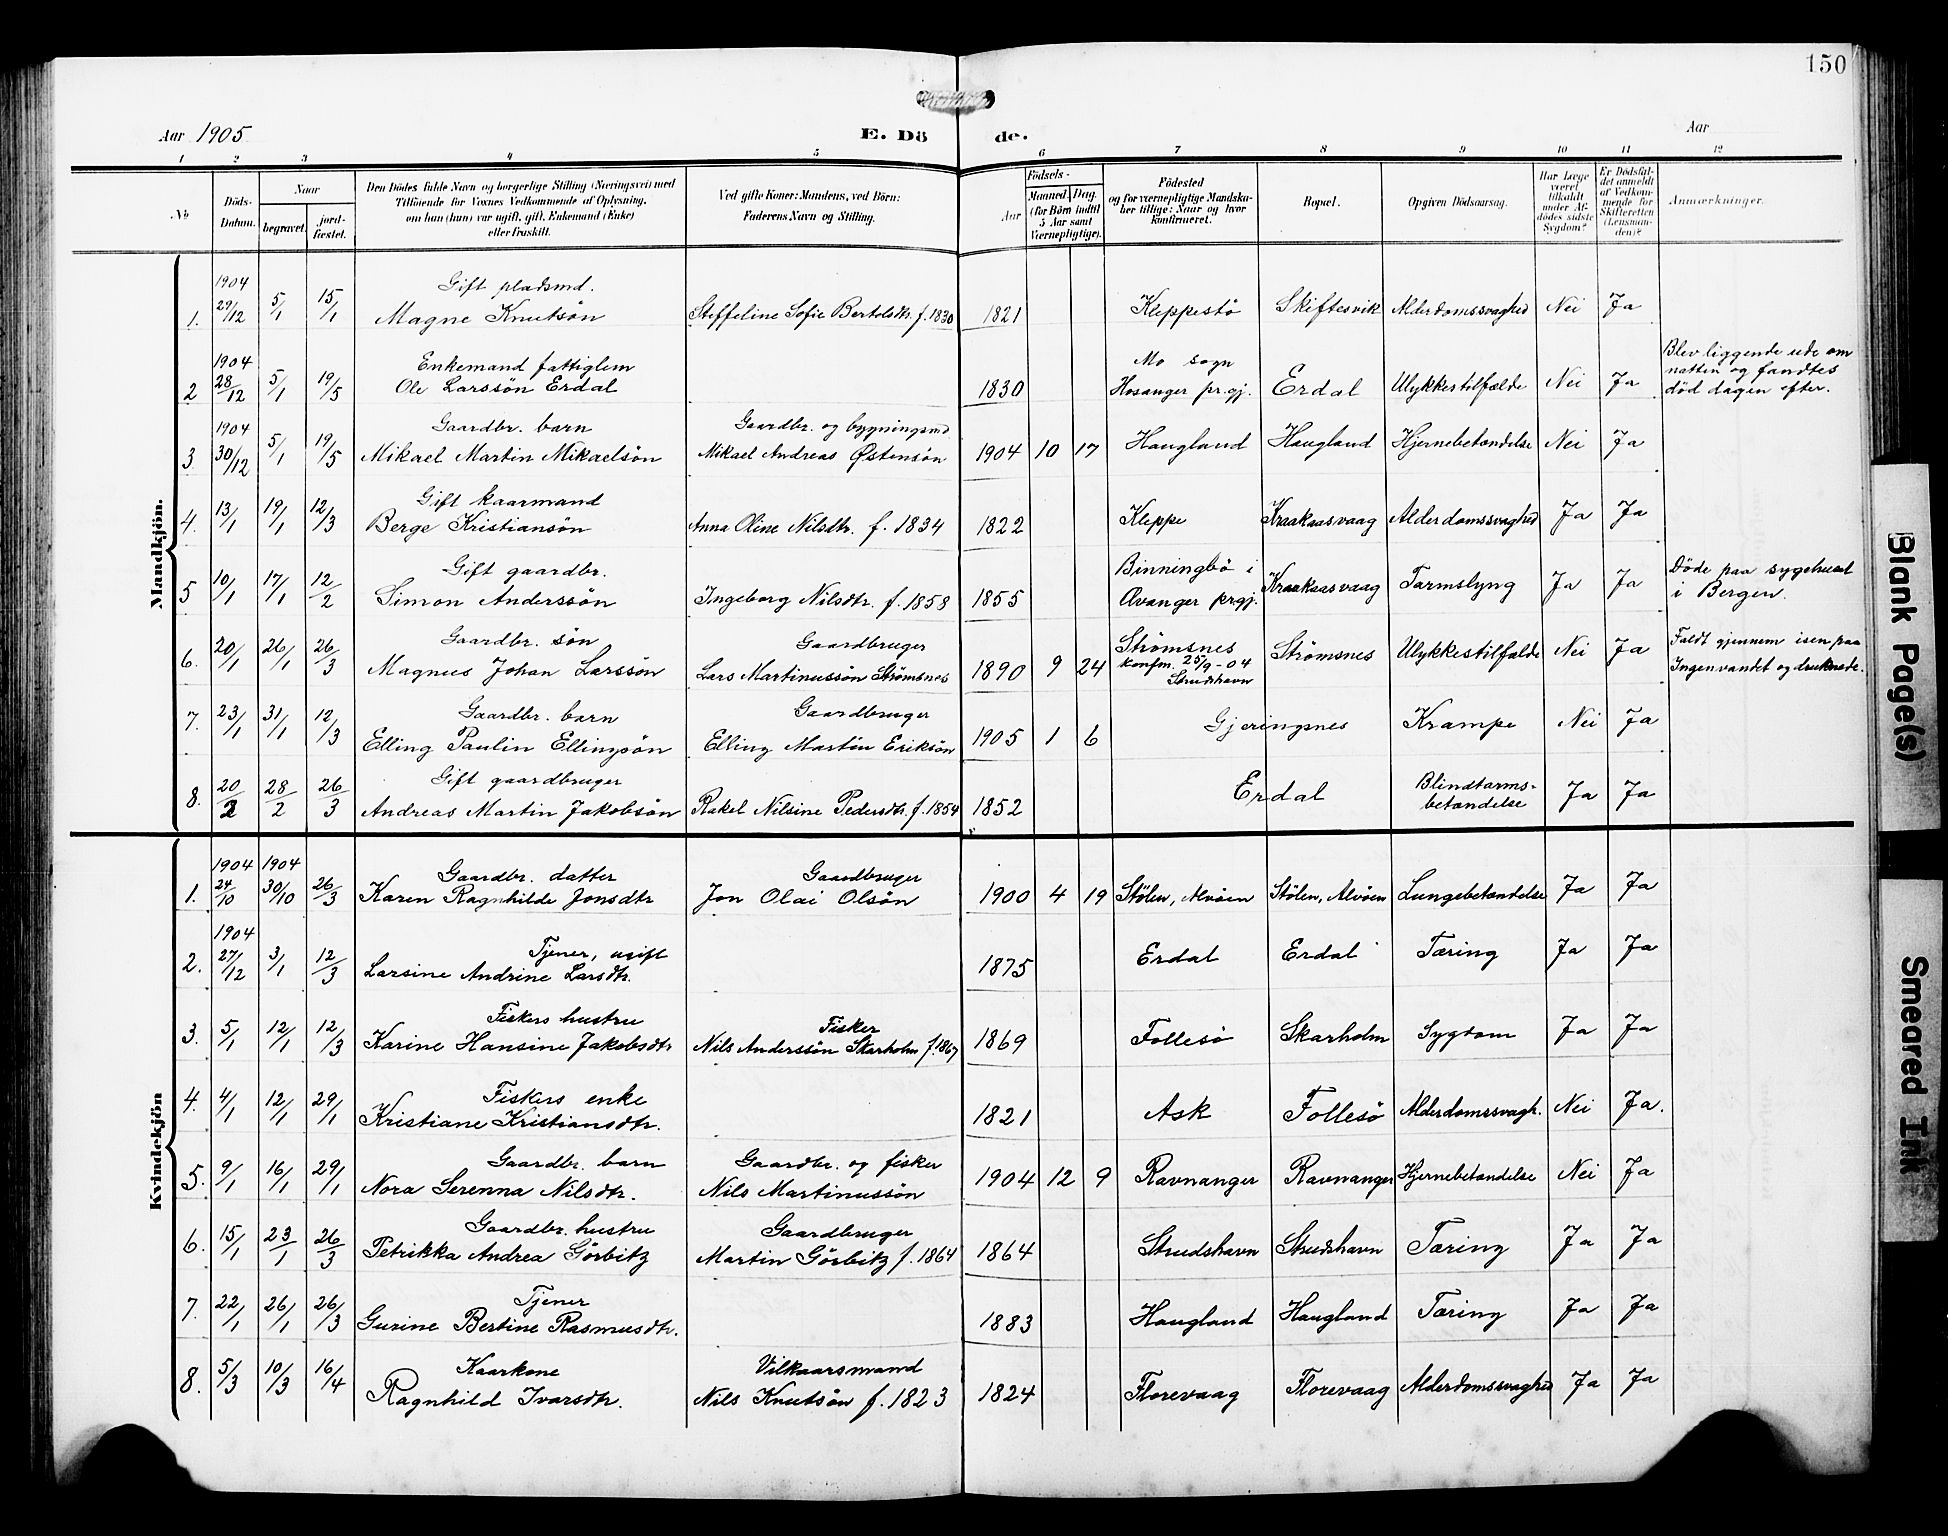 150
Aar 1905
E. Dö de.
Aar
1 2 3 4 5 6 7 8 9 10 11 12
No
Döds-Datum.
Naar
begravet.
jord-fæstet.
Den Dödes fulde Navn og borgerlige Stilling (Næringsvei) med
Tilföiende for Voxnes Vedkommende af Oplysning,
om han (hun) var ugift, gift, Enkemand (Enke)
eller fraskilt.
Ved gifte Koner: Mandens, ved Börn:
Faderens Navn og Stilling.
Födsels-
Aar
Maaned Dag.
(for Börn indtil
5 Aar samt
Værnepligtige).
Födested
og for værnepligtige Mandska-
ber tillige: Naar og hvor
konfirmeret.
Bopæl.
Opgiven Dödsaarsag.
Har Læge
været
tilkaldt
under Af-
dödes sidste
Sygdom?
Er Dödsfal-
det anmeldt
af Vedkom-
mende for
Skifteretten
(Lensman-
den)?
Anmærkninger.
Mandkjön.
1. 1904 29/12 5/1 15/1 Gift pladsmd. Magne Knutsön Steffeline Sofie Bertelsdtr. f. 1830 1821 Kleppestö Skiftesvik Alderdomssvaghed Nei Ja
2 1904 28/12 5/1 19/5 Enkemand fattiglem Ole Larssön Erdal 1830 Mo sogn Hosanger pr.gj. Erdal Ulykkestilfælde Nei Ja Blev liggende ude om natten og fandtes död dagen efter.
3 1904 30/12 5/1 19/5 Gaardbr. barn Mikael Martin Mikaelsön Gaardbr. og bygningsmd Mikael Andreas Østensön 1904 10 17 Haugland Haugland Hjernebetændelse Nei Ja
4. 13/1 19/1 12/3 Gift kaarmand Berge Kristiansön Anna Oline Nilsdtr. f. 1834 1822 Kleppe Kraakaasvaag Alderdomssvaghed Ja Ja
5 10/1 17/1 12/2 Gift gaardbr. Simon Anderssön Ingeborg Nilsdtr. f. 1858 1855 Binningbö i Avanger prgj. Kraakaasvaag Tarmslyng Ja Ja Döde paa sygehuset i Bergen.
6. 20/1 26/1 26/3 Gaardbr. sön Magnus Johan Larssön Gaardbruger Lars Martinussön Strømsnes 1890 9 24 Strømsnes konfm. 25/9-04 Strudshavn Strømsnes Ulykkestilfælde Nei Ja Faldt gjennem isen paa Ingenvandet og druknede.
7. 23/1 31/1 12/3 Gaardbr. barn Elling Paulin Ellingsön Gaardbruger Elling Martin Eriksön 1905 1 6 Gjeringsnes Krampe Nei Ja
8. 20/2 28/2 26/3 Gift gaardbruger Andreas Martin Jakobsön Rakel Nilsine Pedersdtr. f. 1854 1852 Erdal Blindtarms-betændelse Ja Ja
Kvindekjön
1. 1904 24/10 1904 30/10 26/3 Gaardbr. datter Karen Ragnhilde Jonsdtr Gaardbruger Jon Olai Olsön 1900 4 19 Stölen, Alvöen Stölen, Alvöen Lungebetændelse Ja Ja
2. 1904 27/12 3/1 12/3 Tjener, ugift Larsine Andrine Larsdtr. 1875 Erdal Erdal Tæring Ja Ja
3. 5/1 12/1 12/3 Fiskers hustru Karine Hansine Jakobsdtr Fisker Nils Anderssön Skarholm f. 1867 1869 Follesö Skarholm Sygdom Ja Ja
4. 4/1 12/1 29/1 Fiskers enke Kristiane Kristiansdtr. 1821 Ask Follesö Alderdomssvagh. Nei Ja.
5. 9/1 16/1 29/1 Gaardbr. barn Nora Serenna Nilsdtr. Gaardbr. og fisker Nils Martinussön 1904 12 9 Ravnanger Ravnanger Hjernebetændelse Nei Ja
6. 15/1 23/1 26/3 Gaardbr. hustru Petrikka Andrea Görbitz Gaardbruger Martin Görbitz f. 1864 1864 Strudshavn Strudshavn Tæring Ja Ja
7. 22/1 26/1 26/3 Tjener Gurine Bertine Rasmusdtr. 1883 Haugland Haugland Tæring Ja Ja
8. 5/3 10/3 16/4 Kaarkone Ragnhild Ivarsdtr. Vilkaarsmand Nils Knutsön f. 1823 1824 Florevaag Florevaag Alderdomssvaghed Ja Ja
Blank Page(s)
Smeared Ink